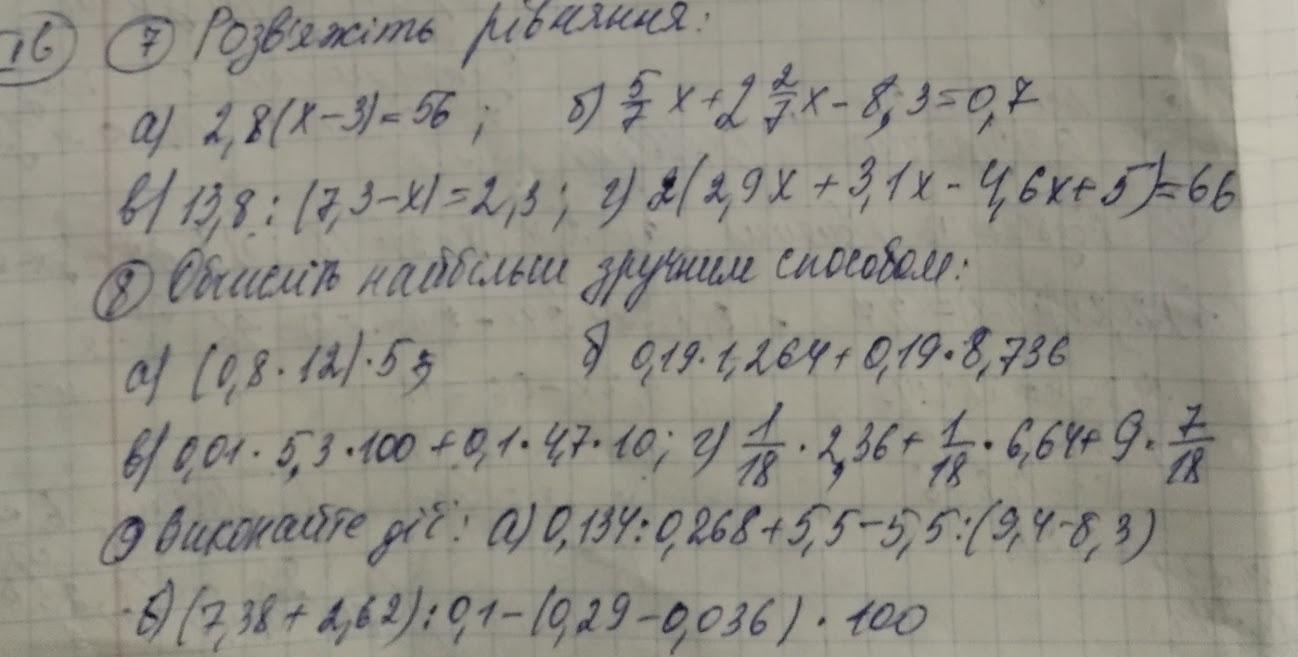 16 ⑦ Розв'яжіть рівняння:
а) 2,8(x-3)=56; б) 5/7 x+2 2/7 x-8,3=0,7
в) 13,8:(7,3-x)=2,3; г) 2(2,9x+3,1x-4,6x+5)=66
⑧ Обчисліть найбільш зручним способом:
а) (0,8·12)·5; б) 0,19·1,264+0,19·8,736
в) 0,01·5,3·100+0,1·4,7·10; г) 1/18·2,36+1/18·6,64+9·7/18
⑨ Виконайте дії: а) 0,134:0,268+5,5-5,5:(9,4-8,3)
б) (7,38+2,62):0,1-(0,29-0,036)·100